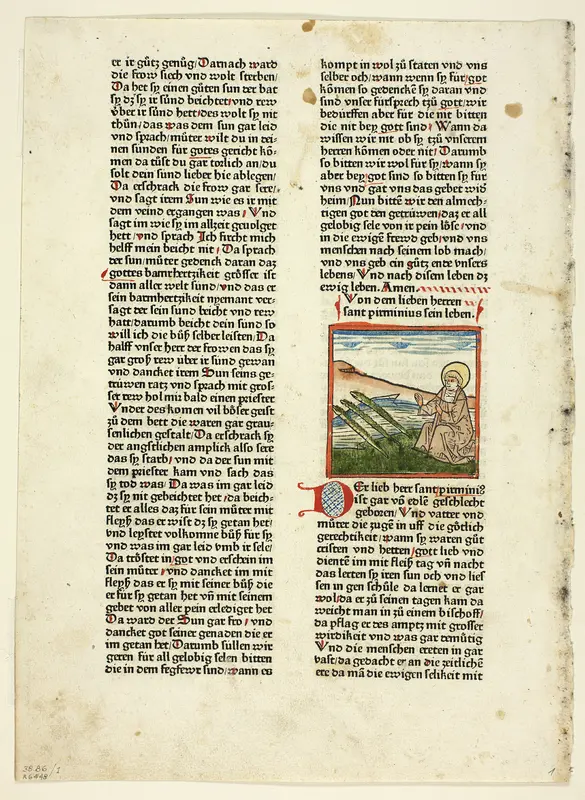 er ir gůtz genůg/Darnach ward
die frow siech vnd wolt sterben/
Da het sy einen gůten sun der bat
sy dz sy ir sünd beichtet/vnd rew
über ir sünd hett/des wolt sy nit
thůn/das was dem sun gar leid
vnd sprach/můter wilt du in dei-
nen sunden für gottes gericht kō-
men da tůst du gar torlich an/du
solt dein sund lieber hie ablegen/
Da erschrack die frow gar sere/
vnd sagt irem Sun wie es ir mit
dem veind ergangen was/Vnd
sagt im wie sy im allzeit geuolget
hett/vnd sprach Ich fircht mich
helff mein beicht nit/Da sprach
der sun/můter gedenck daran daz
gottes barmhertzikeit grösser ist
dann aller welt sund/vnd das er
sein barmhertzikeit nyemant ver-
sagt der sein sund beicht vnd rew
hatt/darumb beicht dein sund so
will ich die bůß selber leisten/Da
halff vnser herr der frowen das sy
gar groß rew über ir sünd gewan
vnd dancket irem Sun seins ge-
trüwen ratz vnd sprach mit gros-
ser rew hol mir bald einen priester
Vnder des komen vil böser geist
zů dem bett die waren gar grau-
senlichen gestalt/Da erschrack sy
der angstlichen amplick also sere
das sy starb/vnd da der sun mit
dem priester kam vnd sach das
sy tod was/Da was im gar leid
dz sy nit gebeichtet het/da beich-
tet er alles daz für sein můter mit
fleyß das er wist dz sy getan het/
vnd leystet volkomne bůß für sy
vnd was im gar leid vmb ir sele/
Da tröstet in got vnd erschein im
sein můter/vnd dancket im mit
fleyß das er sy mit seiner bůß die
er für sy getan het vn̄ mit seinem
gebet von aller pein erlediget het
Da ward der Sun gar fro/vnd
dancket got seiner genaden die er
im getan het/Darumb sullen wir
geren für all gelobig selen bitten
die in dem fegfewr sind/wann es
kompt in wol zů staten vnd vns
selber och/wann wenn sy für/got
kömen so gedencкē sy daran vnd
sind vnser fürsprech tzů gott/wir
bedürffen aber für die nit bitten
die nit bey gott sind/Wann da
wissen wir nit ob sy tzů vnserem
herren kömen oder nit/Darumb
so bitten wir wol für sy/wann sy
aber bey/got sind so bitten sy für
vns vnd gat vns das gebet wid
heim/Nun bittē wir den almech-
tigen got den getrüwen/daz er all
gelobig sele von ir pein löse/vnd
in die ewige frewd geb/vnd vns
menschen nach seinem lob mach/
vnd vns geb ein gůtz ende vnsers
lebens/Vnd nach disem leben dz
ewig leben. Amen
Von dem lieben herren
sant pirminius sein leben.
DEr lieb herr sant pirmini9
ist gar vō edlē geschlecht
geboren/Vnd vatter vnd
můter die zugē in uff die götlich
gerechtikeit/wann sy waren gůt
cristen vnd hetten/gott lieb vnd
dientē im mit fleiß tag vn̄ nacht
das lerten sy iren sun och vnd lies
sen in gen schůle da lernet er gar
wol/da er zů seinen tagen kam da
weicht man in zů einem bischoff/
da pflag er des amptz mit grosser
wirdikeit vnd was gar demůtig
Vnd die menschen ereten in gar
vast/da gedacht er an die zeitlichē
ere da mā die ewigen selikeit mit
38.86/1
R6448
1